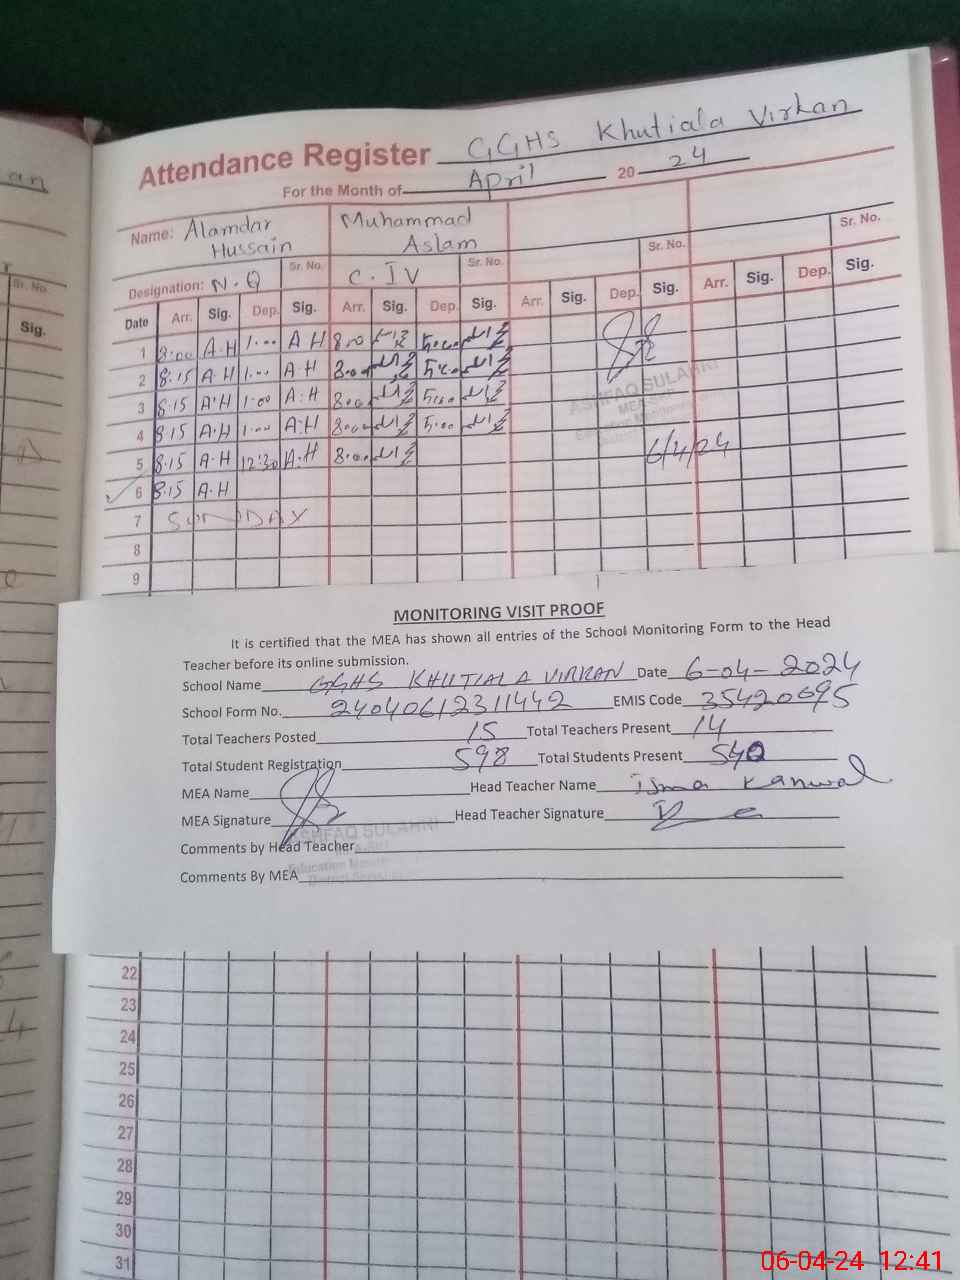 Attendance Register GGHS Khutiala Virkan
For the Month of April 20 24
Name: Alamdar Hussain Muhammad Aslam
Sr. No. Sr. No. Sr. No. Sr. No.
Designation: N.Q C.IV
Date Arr. Sig. Dep. Sig. Arr. Sig. Dep. Sig. Arr. Sig. Dep. Sig. Arr. Sig. Dep. Sig.
1 8:00 A.H 1:00 A H 8:00 5:00
2 8.15 A.H 1:00 A.H 8:00 5:00
3 8.15 A.H 1:00 A.H 8:00 5:00
4 8.15 A.H 1:00 A.H 8:00 5:00
5 8.15 A.H 12:30 A.H 8:00
6 8.15 A.H
7 SUNDAY
8
9
ASHFAQ SULAHRI
6/4/24
MONITORING VISIT PROOF
It is certified that the MEA has shown all entries of the School Monitoring Form to the Head
Teacher before its online submission.
School Name GGHS KHUTIALA VIRKAN Date 6-04-2024
School Form No. 24040612311442 EMIS Code 35420695
Total Teachers Posted 15 Total Teachers Present 14
Total Student Registration 598 Total Students Present 540
MEA Name Head Teacher Name Isma Kanwal
MEA Signature Head Teacher Signature
ASHFAQ SULAHRI
Comments by Head Teacher
Comments By MEA
22
23
24
25
26
27
28
29
30
31
Sr. No.
Sig.
06-04-24 12:41